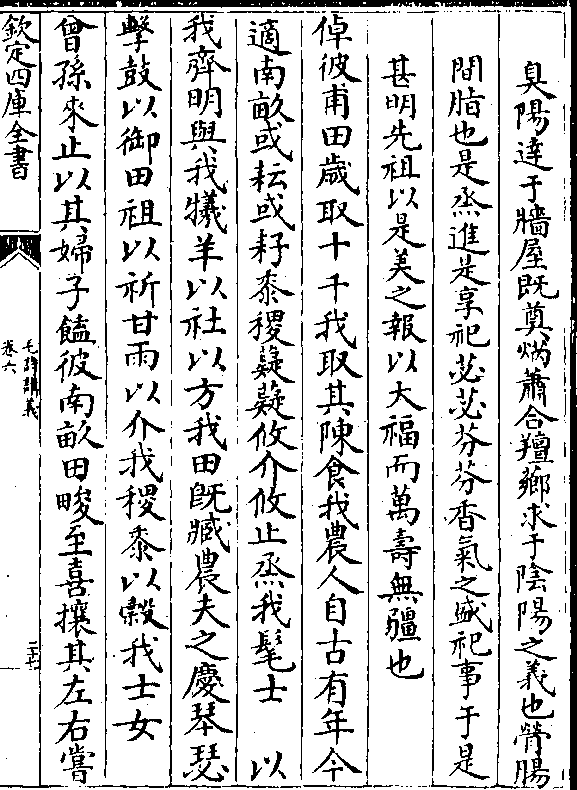 臭陽達于牆屋既奠焫蕭合羶薌求于陰陽之義也膋腸
間脂也是烝進是享祀苾苾芬芬香氣之盛祀事于是
甚明先祖以是美之報以大福而萬壽無疆也
倬彼甫田歲取十千我取其陳食我農人自古有年今
適南畝或耘或耔黍稷薿薿攸介攸止烝我髦士　以
我齊明與我犧羊以社以方我田既臧農夫之慶琴瑟
擊鼓以御田祖以祈甘雨以介我稷黍以穀我士女
曾孫來止以其婦子饁彼南畝田畯至喜攘其左右嘗
欽定四庫全書
毛詩講義
卷六
二十七